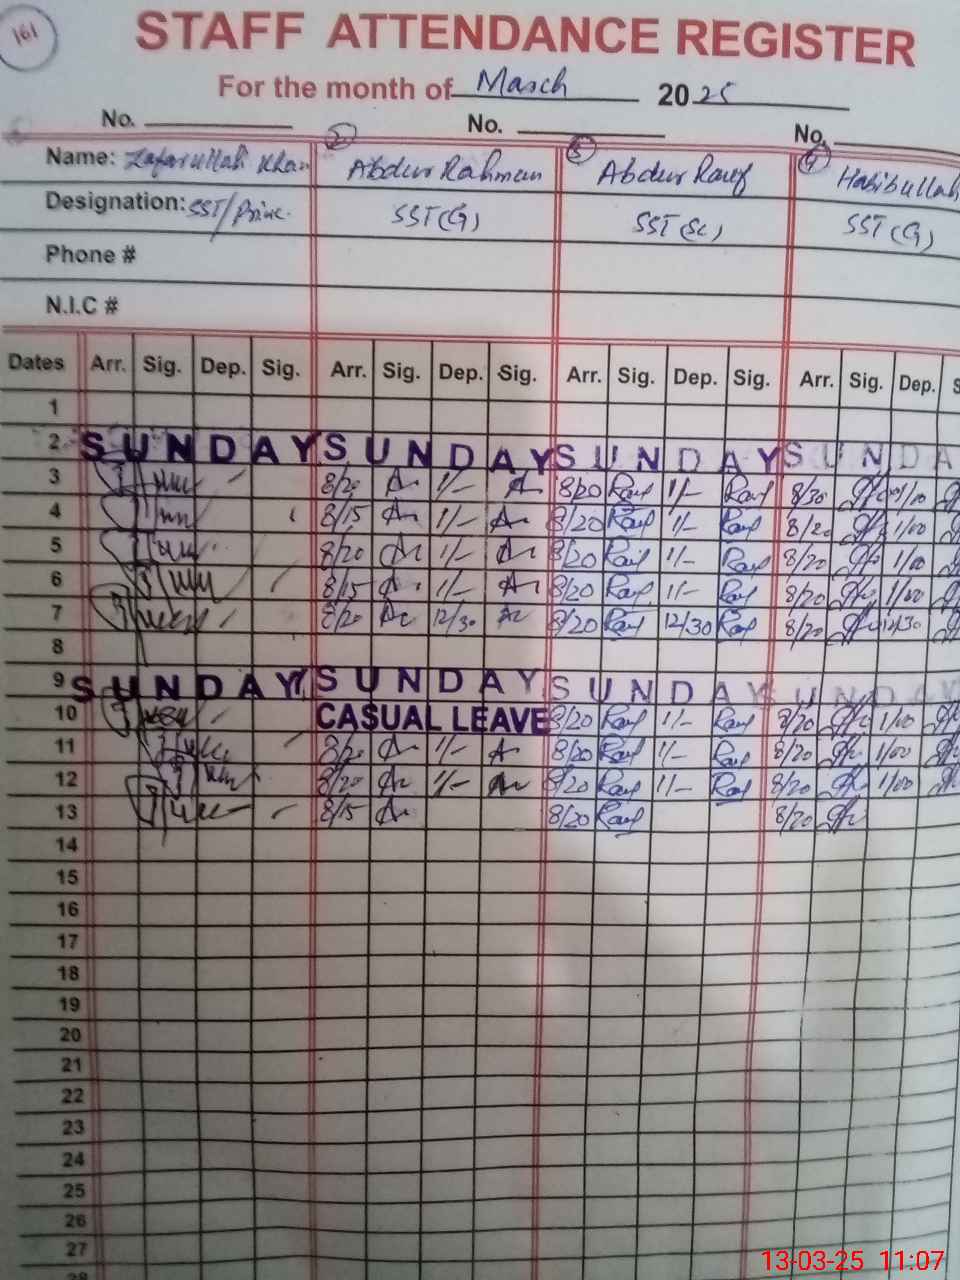 161
STAFF ATTENDANCE REGISTER
For the month of March 2025
No. No. No.
2 3 4
Name: Zafarullah Khan Abdur Rahman Abdur Rauf Habibullah
Designation: SST/Princ. SST(G) SST(Sc) SST(G)
Phone #
N.I.C #
Dates Arr. Sig. Dep. Sig. Arr. Sig. Dep. Sig. Arr. Sig. Dep. Sig. Arr. Sig. Dep. S
1
2 SUNDAY SUNDAY SUNDAY SUNDA
3 8/20 1/- 8/20 Rauf 1/- Rauf 8/30 1/10
4 8/15 1/- 8/20 Rauf 1/- Rauf 8/20 1/00
5 8/20 1/- 8/20 Rauf 1/- Rauf 8/20 1/00
6 8/15 1/- 8/20 Rauf 1/- Rauf 8/20 1/00
7 8/20 12/30 8/20 Rauf 12/30 Rauf 8/20 12/30
8
9 SUNDAY SUNDAY SUNDAY SUNDAY
10 CASUAL LEAVE 8/20 Rauf 1/- Rauf 8/20 1/00
11 8/20 1/- 8/20 Rauf 1/- Rauf 8/20 1/00
12 8/20 1/- 8/20 Rauf 1/- Rauf 8/20 1/00
13 8/15 8/20 Rauf 8/20
14
15
16
17
18
19
20
21
22
23
24
25
26
27
28
13-03-25 11:07